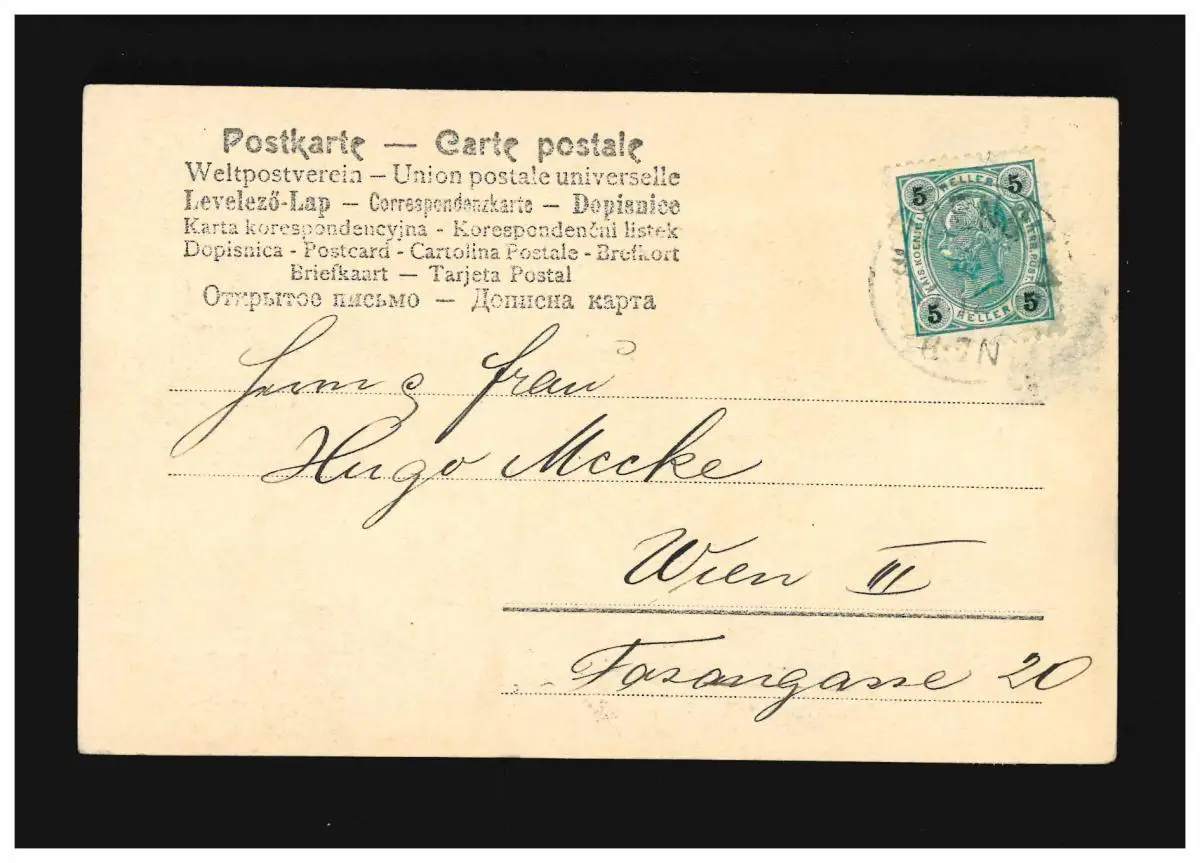 Postkarte — Carte postale
Weltpostverein – Union postale universelle
Levelező-Lap – Correspondenzkarte – Dopisnice
Karta korespondencyjna - Korespondenční listek
Dopisnica - Postcard - Cartolina Postale - Brefkort
Briefkaart — Tarjeta Postal
Открытое письмо — Дописна карта
5 HELLER 5
KAIS. KOENIGL.
5 HELLER 5
7N
Frau
Hugo Mecke
Wien III
Fasangasse 20